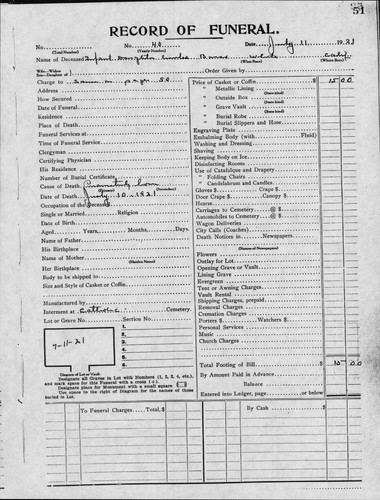 51
RECORD OF FUNERAL.
No. No. 40 Date July 11 1921
(Total Number) (Yearly Number)
Name of Deceased Infant Daughter White
(What Race) (Where Born)
Wife—Widow
Son—Daughter of Order Given by
Charge to Same as page 50
Address
How Secured
Date of Funeral
Residence
Place of Death
Funeral Services at
Time of Funeral Service
Clergyman
Certifying Physician
His Residence
Number of Burial Certificate
Cause of Death Prematurely born
(Primary) (Secondary)
Date of Death July 10-1921
Occupation of the Deceased
Single or Married Religion
Date of Birth
Aged Years, Months, Days
Name of Father
His Birthplace
Name of Mother
(Maiden Name)
Her Birthplace
Body to be shipped to
Size and Style of Casket or Coffin
Manufactured by
Interment at Catholic Cemetery.
Lot or Grave No. Section No.
7-11-21
1.
2.
3.
4.
5.
6.
Diagram of Lot or Vault
Designate all Graves in Lot with Numbers (1, 2, 3, 4, etc.),
and mark space for this Funeral with a cross (+).
Designate place for Monument with a small square
Use space to the right of Diagram for the names of those
buried in Lot.
Price of Casket or Coffin $ 15 00
" Metallic Lining
" Outside Box
" Grave Vault
" Burial Robe
" Burial Slippers and Hose
Engraving Plate
Embalming Body (with Fluid)
Washing and Dressing
Shaving
Keeping Body on Ice
Disinfecting Rooms
Use of Catafalque and Drapery
" Folding Chairs
" Candelabrum and Candles
Gloves $ Crape $
Door Crape $ Canopy $
Hearse
Carriages to Cemetery @ $
Automobiles to Cemetery @ $
Wagon Deliveries
City Calls (Coaches)
Death Notices in Newspapers
(Names of Newspapers)
Flowers
Outlay for Lot
Opening Grave or Vault
Lining Grave
Evergreen
Tent or Awning Charges
Vault Rental
Shipping Charges, prepaid
Removal Charges
Cremation Charges
Porters $ Watchers $
Personal Services
Music
Church Charges
Total Footing of Bill $ 15 00
By Amount Paid in Advance
Balance
Entered into Ledger, page or below
To Funeral Charges Total, $
By Cash $